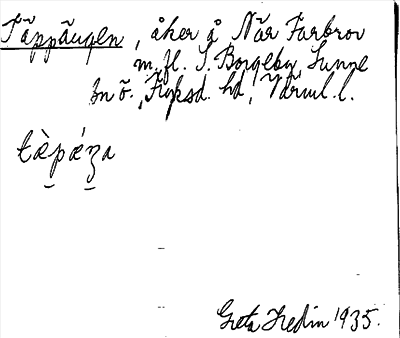 Täppäugen, åker å När Farbrov
m. fl. S. Borgeby, Sunne
sn ö., Fryksd. hd, Värml. l.
tæ̀pǽʒa
Greta Hedin 1935.